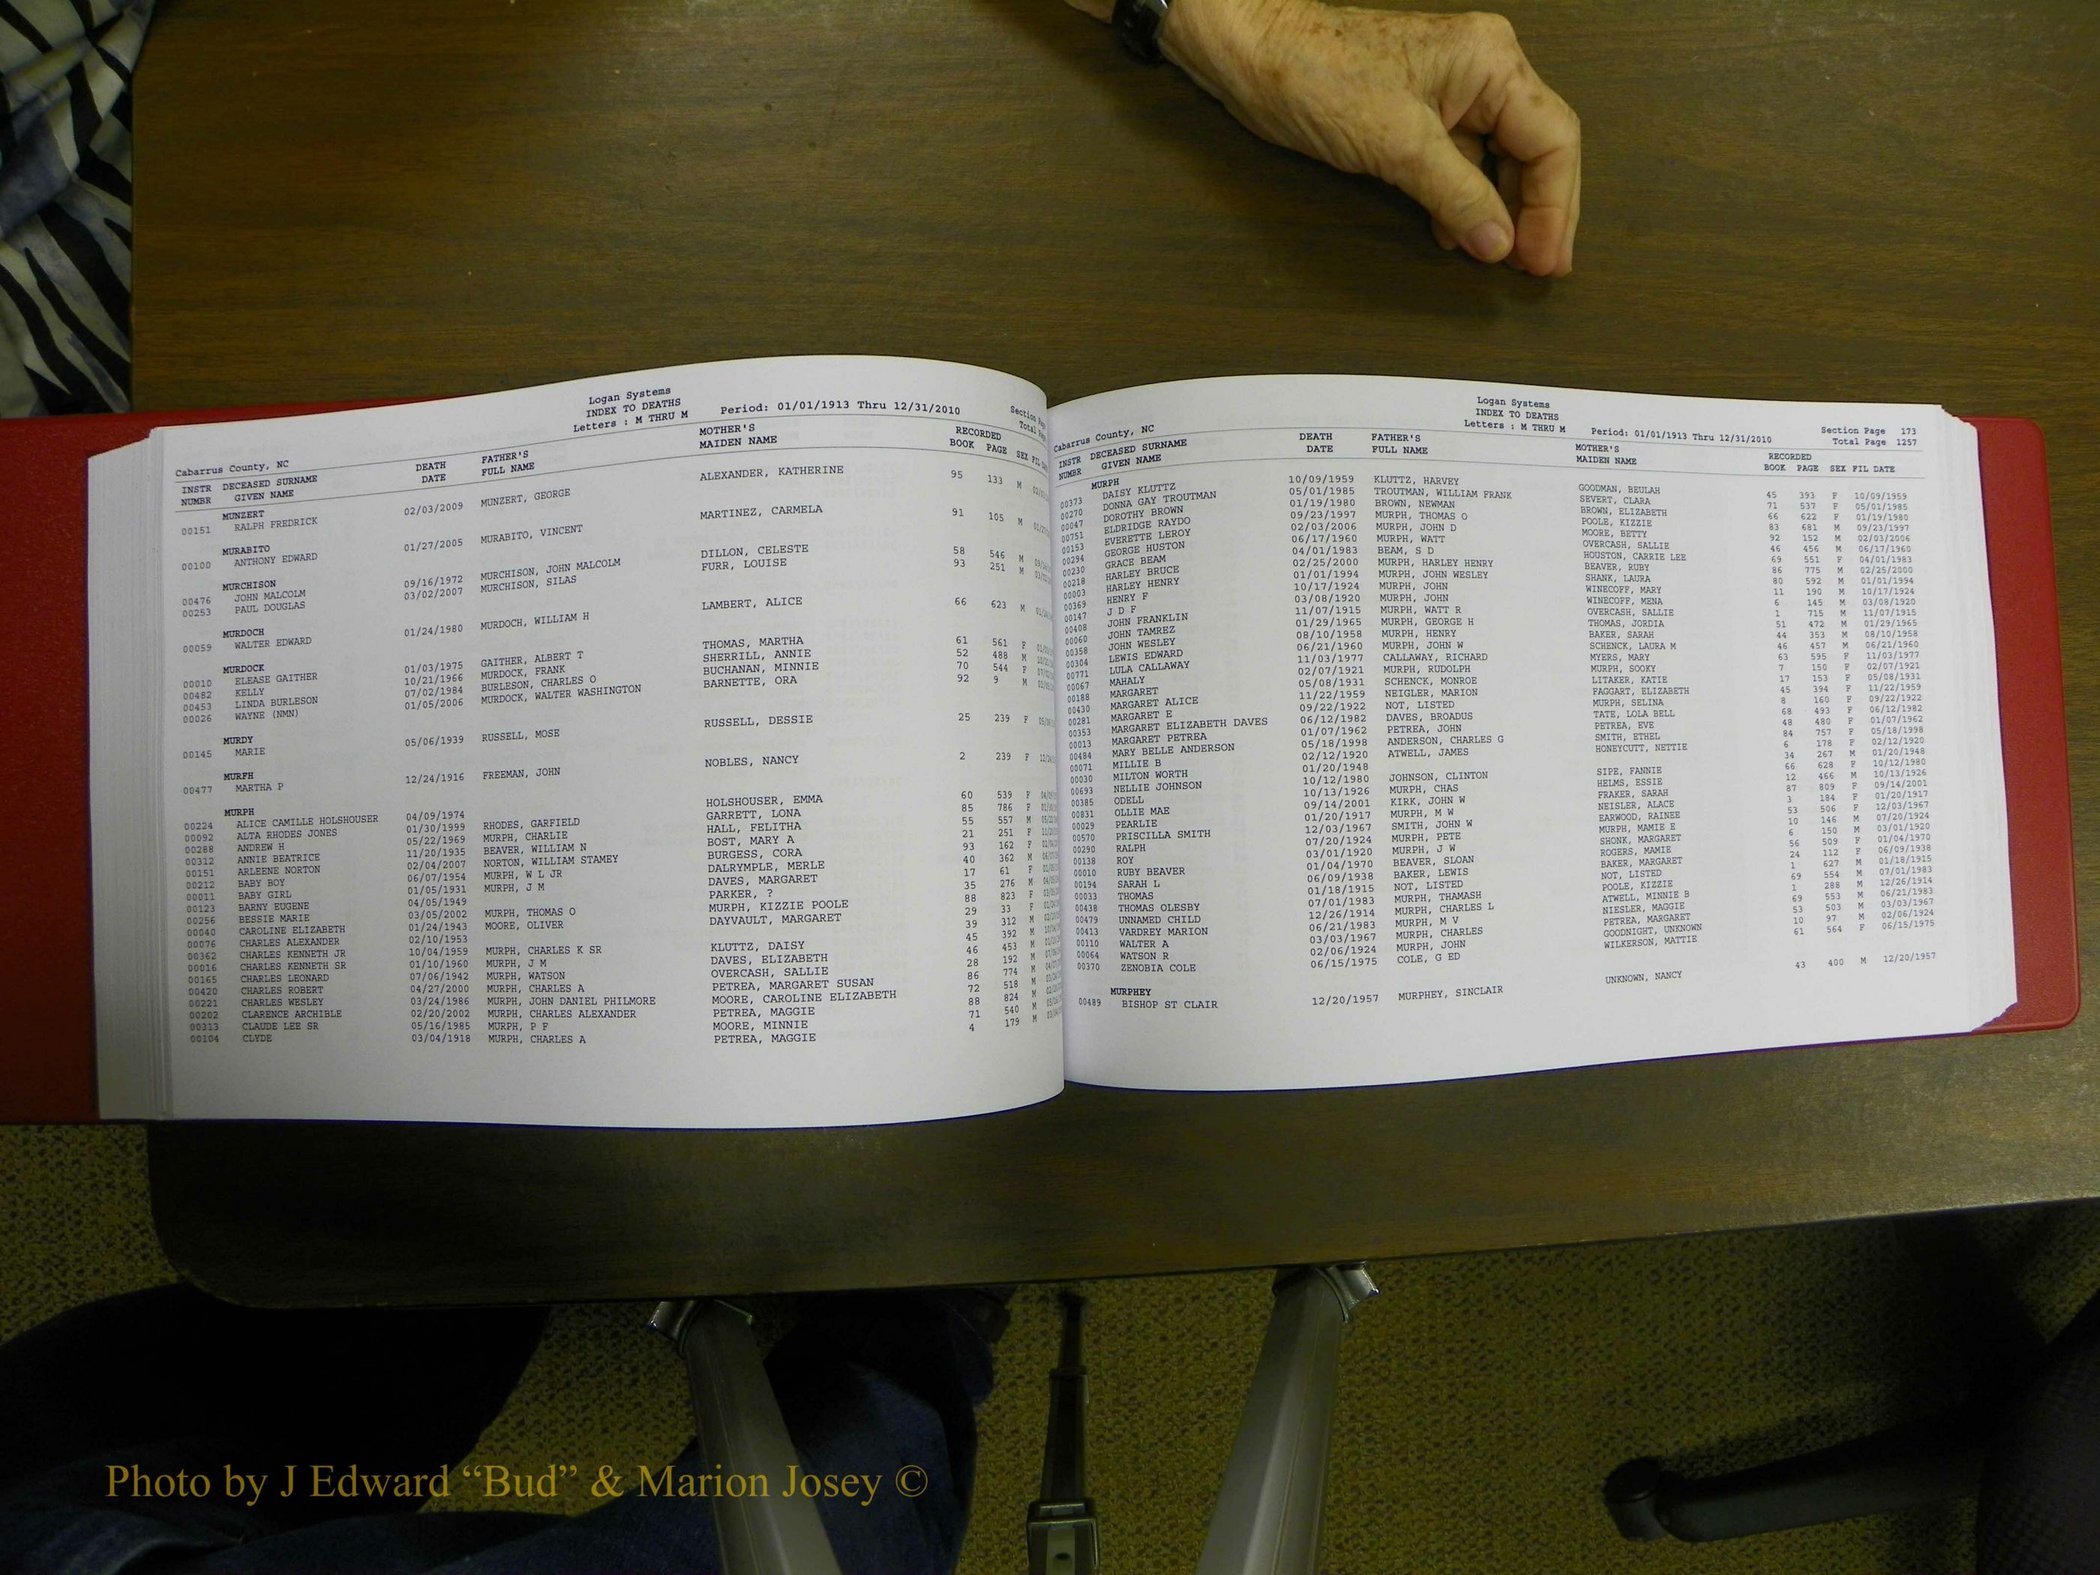 Logan Systems
INDEX TO DEATHS
Letters : M THRU M Period: 01/01/1913 Thru 12/31/2010
Cabarrus County, NC
INSTR DECEASED SURNAME DEATH FATHER'S MOTHER'S RECORDED
NUMBR GIVEN NAME DATE FULL NAME MAIDEN NAME BOOK PAGE SEX
MUNZERT
00151 RALPH FREDRICK 02/03/2009 MUNZERT, GEORGE ALEXANDER, KATHERINE 95 133 M
MURABITO
00100 ANTHONY EDWARD 01/27/2005 MURABITO, VINCENT MARTINEZ, CARMELA 91 105 M
MURCHISON
00476 JOHN MALCOLM 09/16/1972 MURCHISON, JOHN MALCOLM DILLON, CELESTE 58 546 M
00253 PAUL DOUGLAS 03/02/2007 MURCHISON, SILAS FURR, LOUISE 93 251 M
MURDOCH
00059 WALTER EDWARD 01/24/1980 MURDOCH, WILLIAM H LAMBERT, ALICE 66 623 M
MURDOCK
00010 ELEASE GAITHER 01/03/1975 GAITHER, ALBERT T THOMAS, MARTHA 61 561 F
00482 KELLY 10/21/1966 MURDOCK, FRANK SHERRILL, ANNIE 52 488 M
00453 LINDA BURLESON 07/02/1984 BURLESON, CHARLES O BUCHANAN, MINNIE 70 544 F
00026 WAYNE (NMN) 01/05/2006 MURDOCK, WALTER WASHINGTON BARNETTE, ORA 92 9 M
MURDY
00145 MARIE 05/06/1939 RUSSELL, MOSE RUSSELL, DESSIE 25 239 F
MURFH
00477 MARTHA P 12/24/1916 FREEMAN, JOHN NOBLES, NANCY 2 239 F
MURPH
00224 ALICE CAMILLE HOLSHOUSER 04/09/1974 HOLSHOUSER, EMMA 60 539 F
00092 ALTA RHODES JONES 01/30/1999 RHODES, GARFIELD GARRETT, LONA 85 786 F
00288 ANDREW H 05/22/1969 MURPH, CHARLIE HALL, FELITHA 55 557 M
00312 ANNIE BEATRICE 11/20/1935 BEAVER, WILLIAM N BOST, MARY A 21 251 F
00151 ARLEENE NORTON 02/04/2007 NORTON, WILLIAM STAMEY BURGESS, CORA 93 162 F
00212 BABY BOY 06/07/1954 MURPH, W L JR DALRYMPLE, MERLE 40 362 M
00011 BABY GIRL 01/05/1931 MURPH, J M DAVES, MARGARET 17 61 F
00123 BARNY EUGENE 04/05/1949 PARKER, ? 35 276 M
00256 BESSIE MARIE 03/05/2002 MURPH, THOMAS O MURPH, KIZZIE POOLE 88 823 F
00040 CAROLINE ELIZABETH 01/24/1943 MOORE, OLIVER DAYVAULT, MARGARET 29 33 F
00076 CHARLES ALEXANDER 02/10/1953 39 312 M
00362 CHARLES KENNETH JR 10/04/1959 MURPH, CHARLES K SR KLUTTZ, DAISY 45 392 M
00016 CHARLES KENNETH SR 01/10/1960 MURPH, J M DAVES, ELIZABETH 46 453 M
00165 CHARLES LEONARD 07/06/1942 MURPH, WATSON OVERCASH, SALLIE 28 192 M
00420 CHARLES ROBERT 04/27/2000 MURPH, CHARLES A PETREA, MARGARET SUSAN 86 774 M
00221 CHARLES WESLEY 03/24/1986 MURPH, JOHN DANIEL PHILMORE MOORE, CAROLINE ELIZABETH 72 518 M
00202 CLARENCE ARCHIBLE 02/20/2002 MURPH, CHARLES ALEXANDER PETREA, MAGGIE 88 824 M
00313 CLAUDE LEE SR 05/16/1985 MURPH, P F MOORE, MINNIE 71 540 M
00104 CLYDE 03/04/1918 MURPH, CHARLES A PETREA, MAGGIE 4 179 M
Logan Systems
INDEX TO DEATHS
Letters : M THRU M Period: 01/01/1913 Thru 12/31/2010 Section Page 173
Cabarrus County, NC Total Page 1257
INSTR DECEASED SURNAME DEATH FATHER'S MOTHER'S RECORDED
NUMBR GIVEN NAME DATE FULL NAME MAIDEN NAME BOOK PAGE SEX FIL DATE
MURPH
00373 DAISY KLUTTZ 10/09/1959 KLUTTZ, HARVEY GOODMAN, BEULAH 45 393 F 10/09/1959
00270 DONNA GAY TROUTMAN 05/01/1985 TROUTMAN, WILLIAM FRANK SEVERT, CLARA 71 537 F 05/01/1985
00047 DOROTHY BROWN 01/19/1980 BROWN, NEWMAN BROWN, ELIZABETH 66 622 F 01/19/1980
00751 ELDRIDGE RAYDO 09/23/1997 MURPH, THOMAS O POOLE, KIZZIE 83 681 M 09/23/1997
00153 EVERETTE LEROY 02/03/2006 MURPH, JOHN D MOORE, BETTY 92 152 M 02/03/2006
00294 GEORGE HUSTON 06/17/1960 MURPH, WATT OVERCASH, SALLIE 46 456 M 06/17/1960
00230 GRACE BEAM 04/01/1983 BEAM, S D HOUSTON, CARRIE LEE 69 551 F 04/01/1983
00218 HARLEY BRUCE 02/25/2000 MURPH, HARLEY HENRY BEAVER, RUBY 86 775 M 02/25/2000
00003 HARLEY HENRY 01/01/1994 MURPH, JOHN WESLEY SHANK, LAURA 80 592 M 01/01/1994
00369 HENRY F 10/17/1924 MURPH, JOHN WINECOFF, MARY 11 190 M 10/17/1924
00147 J D F 03/08/1920 MURPH, JOHN WINECOFF, MENA 6 145 M 03/08/1920
00408 JOHN FRANKLIN 11/07/1915 MURPH, WATT R OVERCASH, SALLIE 1 715 M 11/07/1915
00060 JOHN TAMREZ 01/29/1965 MURPH, GEORGE H THOMAS, JORDIA 51 472 M 01/29/1965
00358 JOHN WESLEY 08/10/1958 MURPH, HENRY BAKER, SARAH 44 353 M 08/10/1958
00304 LEWIS EDWARD 06/21/1960 MURPH, JOHN W SCHENCK, LAURA M 46 457 M 06/21/1960
00771 LULA CALLAWAY 11/03/1977 CALLAWAY, RICHARD MYERS, MARY 63 595 F 11/03/1977
00067 MAHALY 02/07/1921 MURPH, RUDOLPH MURPH, SOOKY 7 150 F 02/07/1921
00188 MARGARET 05/08/1931 SCHENCK, MONROE LITAKER, KATIE 17 153 F 05/08/1931
00430 MARGARET ALICE 11/22/1959 NEIGLER, MARION FAGGART, ELIZABETH 45 394 F 11/22/1959
00281 MARGARET E 09/22/1922 NOT, LISTED MURPH, SELINA 8 160 F 09/22/1922
00353 MARGARET ELIZABETH DAVES 06/12/1982 DAVES, BROADUS TATE, LOLA BELL 68 493 F 06/12/1982
00013 MARGARET PETREA 01/07/1962 PETREA, JOHN PETREA, EVE 48 480 F 01/07/1962
00484 MARY BELLE ANDERSON 05/18/1998 ANDERSON, CHARLES G SMITH, ETHEL 84 757 F 05/18/1998
00071 MILLIE B 02/12/1920 ATWELL, JAMES HONEYCUTT, NETTIE 6 178 F 02/12/1920
00030 MILTON WORTH 01/20/1948 34 267 M 01/20/1948
00693 NELLIE JOHNSON 10/12/1980 JOHNSON, CLINTON SIPE, FANNIE 66 628 F 10/12/1980
00385 ODELL 10/13/1926 MURPH, CHAS HELMS, ESSIE 12 466 M 10/13/1926
00831 OLLIE MAE 09/14/2001 KIRK, JOHN W FRAKER, SARAH 87 809 F 09/14/2001
00029 PEARLIE 01/20/1917 MURPH, M W NEISLER, ALACE 3 184 F 01/20/1917
00570 PRISCILLA SMITH 12/03/1967 SMITH, JOHN W EARWOOD, RAINEE 53 506 F 12/03/1967
00290 RALPH 07/20/1924 MURPH, PETE MURPH, MAMIE E 10 146 M 07/20/1924
00138 ROY 03/01/1920 MURPH, J W SHONK, MARGARET 6 150 M 03/01/1920
00010 RUBY BEAVER 01/04/1970 BEAVER, SLOAN ROGERS, MAMIE 56 509 F 01/04/1970
00194 SARAH L 06/09/1938 BAKER, LEWIS BAKER, MARGARET 24 112 F 06/09/1938
00033 THOMAS 01/18/1915 NOT, LISTED NOT, LISTED 1 627 M 01/18/1915
00438 THOMAS OLESBY 07/01/1983 MURPH, THAMASH POOLE, KIZZIE 69 554 M 07/01/1983
00479 UNNAMED CHILD 12/26/1914 MURPH, CHARLES L ATWELL, MINNIE B 1 288 M 12/26/1914
00413 VARDREY MARION 06/21/1983 MURPH, M V NIESLER, MAGGIE 69 553 M 06/21/1983
00110 WALTER A 03/03/1967 MURPH, CHARLES PETREA, MARGARET 53 503 M 03/03/1967
00064 WATSON R 02/06/1924 MURPH, JOHN GOODNIGHT, UNKNOWN 10 97 M 02/06/1924
00370 ZENOBIA COLE 06/15/1975 COLE, G ED WILKERSON, MATTIE 61 564 F 06/15/1975
MURPHEY
00489 BISHOP ST CLAIR 12/20/1957 MURPHEY, SINCLAIR UNKNOWN, NANCY 43 400 M 12/20/1957
Photo by J Edward “Bud” & Marion Josey ©